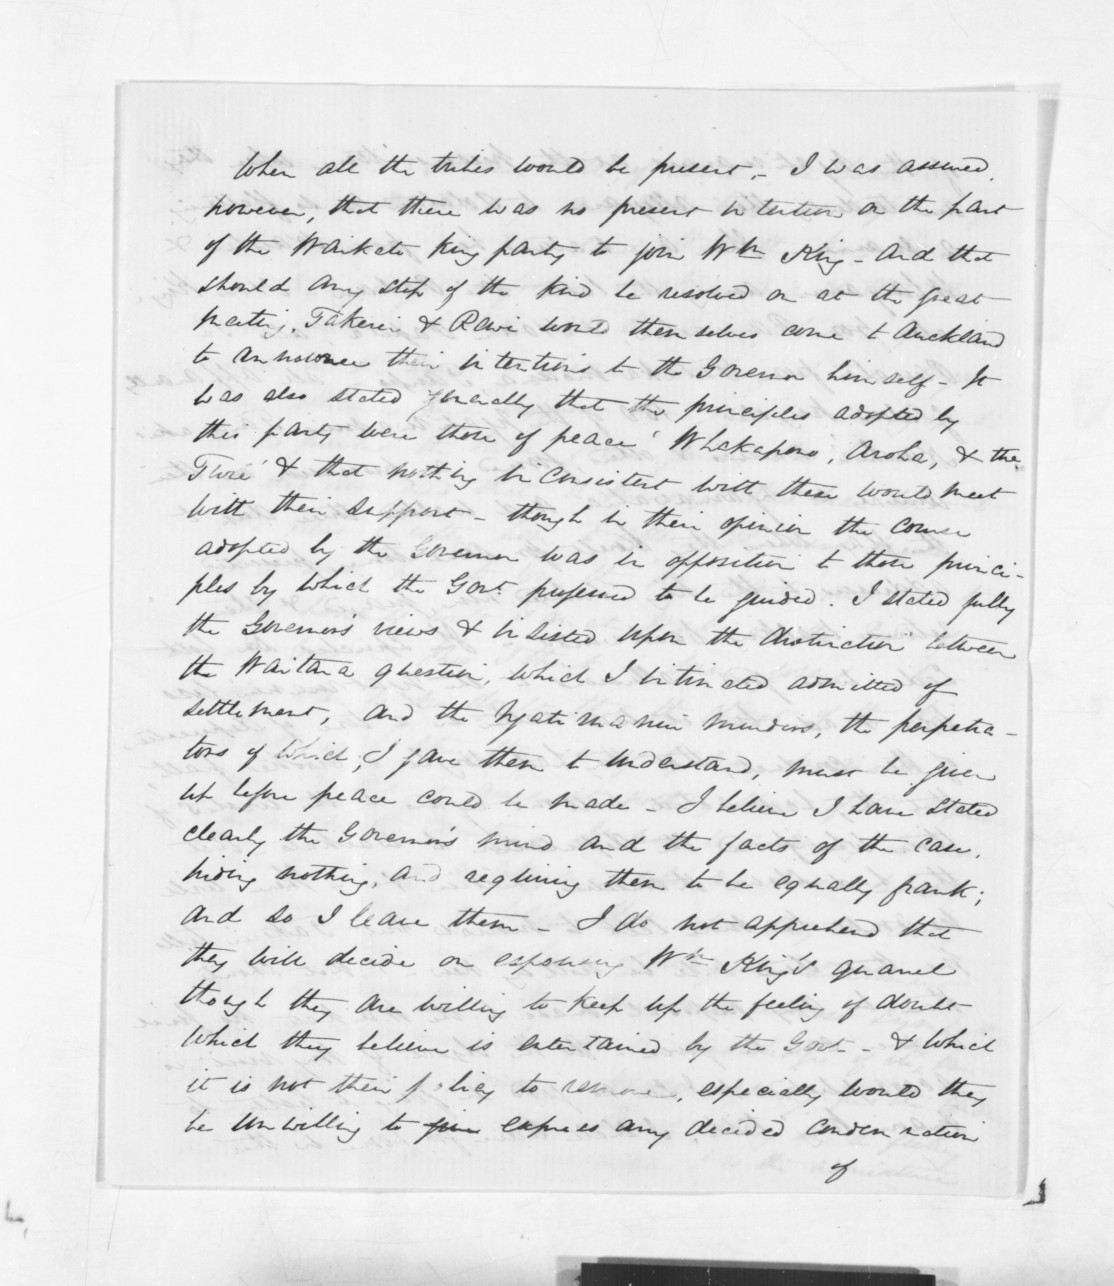 When all the tribes would be present,- I was assured,
however, that there was no present intention on the part
of the Waikato King party to join Wm King - and that
should any step of the kind be resolved on at the great
meeting, Takerei & Rewi would themselves come to Auckland
to announce their intentions to the Governor himself - It
was also stated generally that the principles adopted by
this party were those of peace 'Whakapono, Aroha, & the
Ture' & that nothing inconsistent with these would meet
with their support - though in their opinion the course
adopted by the Governor was in opposition to those princi-
ples by which the Govt professed to be guided. I stated fully
the Governor's views & insisted upon the distinction between
the Waitara question, which I intimated admitted of
settlement, and the Ngatimaniu murders, the perpetra-
tors of which, I gave them to understand, must be given
up before peace could be made - I believe I have stated
clearly the Governor's mind and the facts of the case,
hiding nothing, and requiring them to be equally frank;
and so I leave them - I do not apprehend that
they will decide on espousing Wm King's quarrel
though they are willing to keep up the feeling of doubt
which they believe is entertained by the Govt - & which
it is not their policy to remove, especially would they
be unwilling to give express any decided condemnation
of